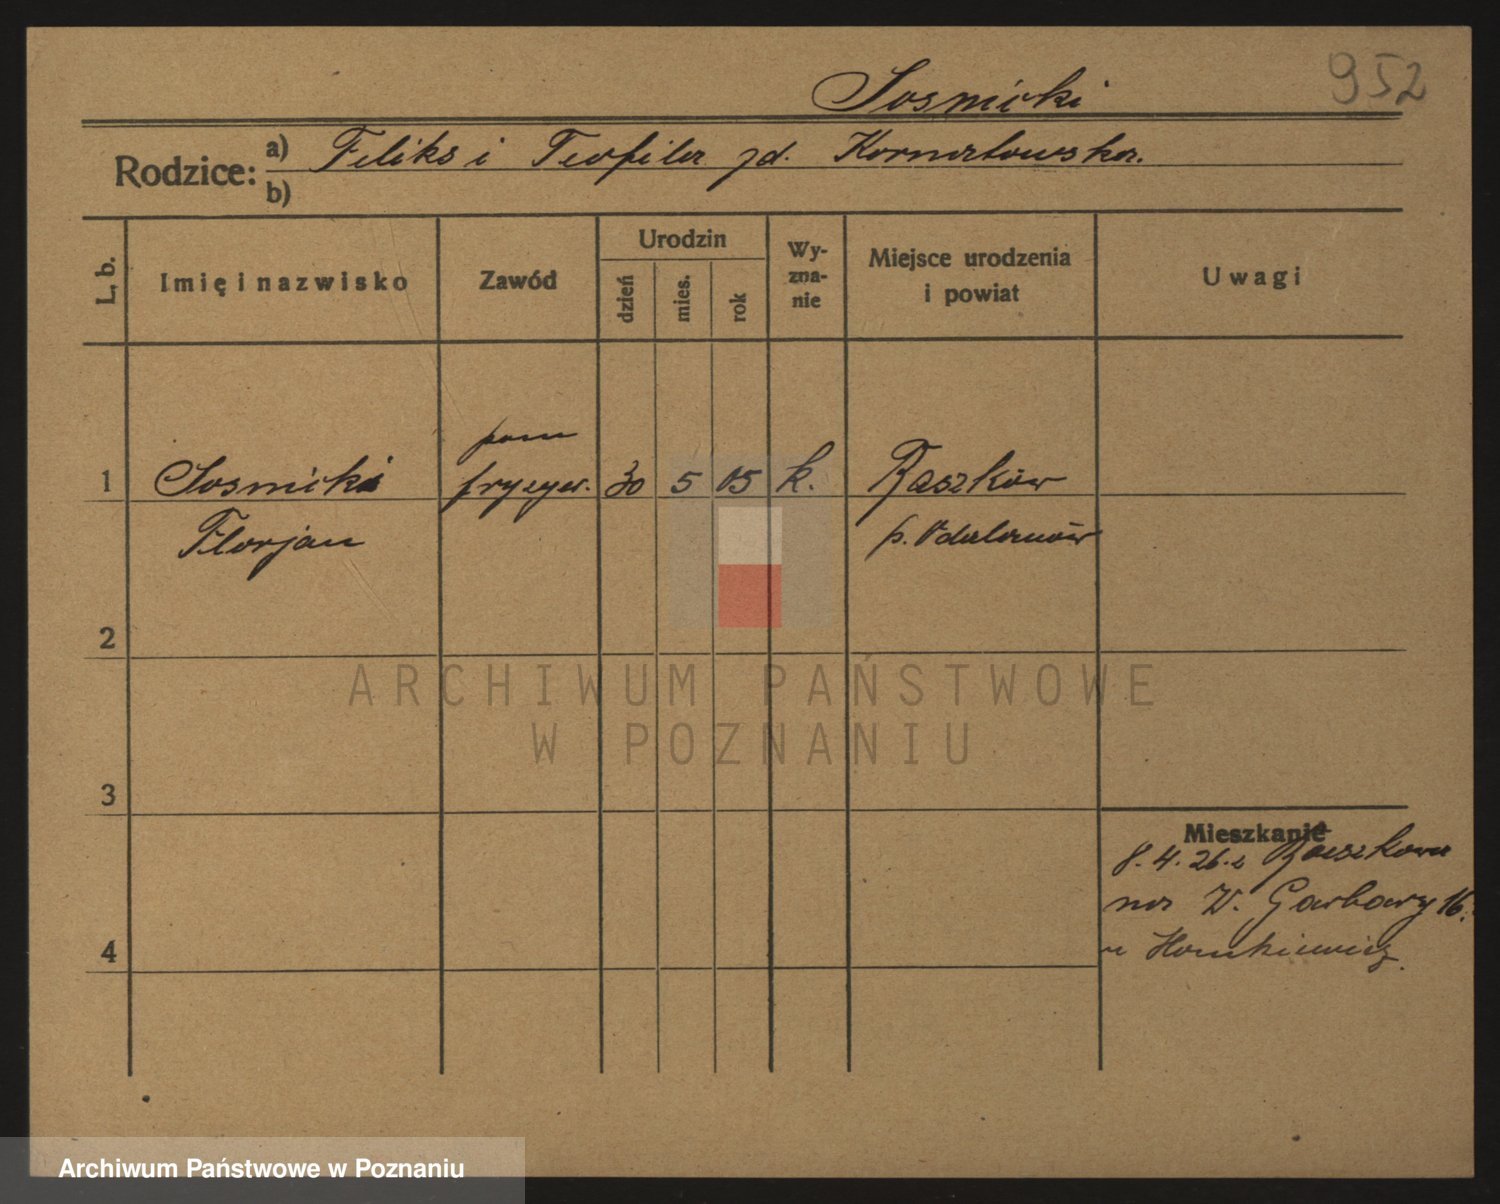 952
Sosnicki
Rodzice: a) Feliks i Teofila zd. Kornatowska.
b)
L, b.
Imię i nazwisko
Zawód
Urodzin
dzień
mies.
rok
Wy-
zna-
nie
Miejsce urodzenia
i powiat
Uwagi
pom
1 Sosnicki fryzyer. 30 5 05 k. Raszków
Florjan p. Odolanów
2
3
4
Mieszkanie
8. 4. 26. z Raszkowa
na W. Garbary 16.
ARCHIWUM PAŃSTWOWE
W POZNANIU
Archiwum Państwowe w Poznaniu